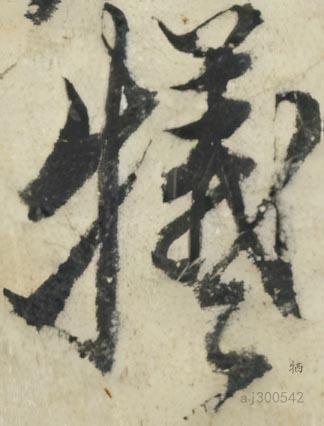 犧
牺
a-j300542